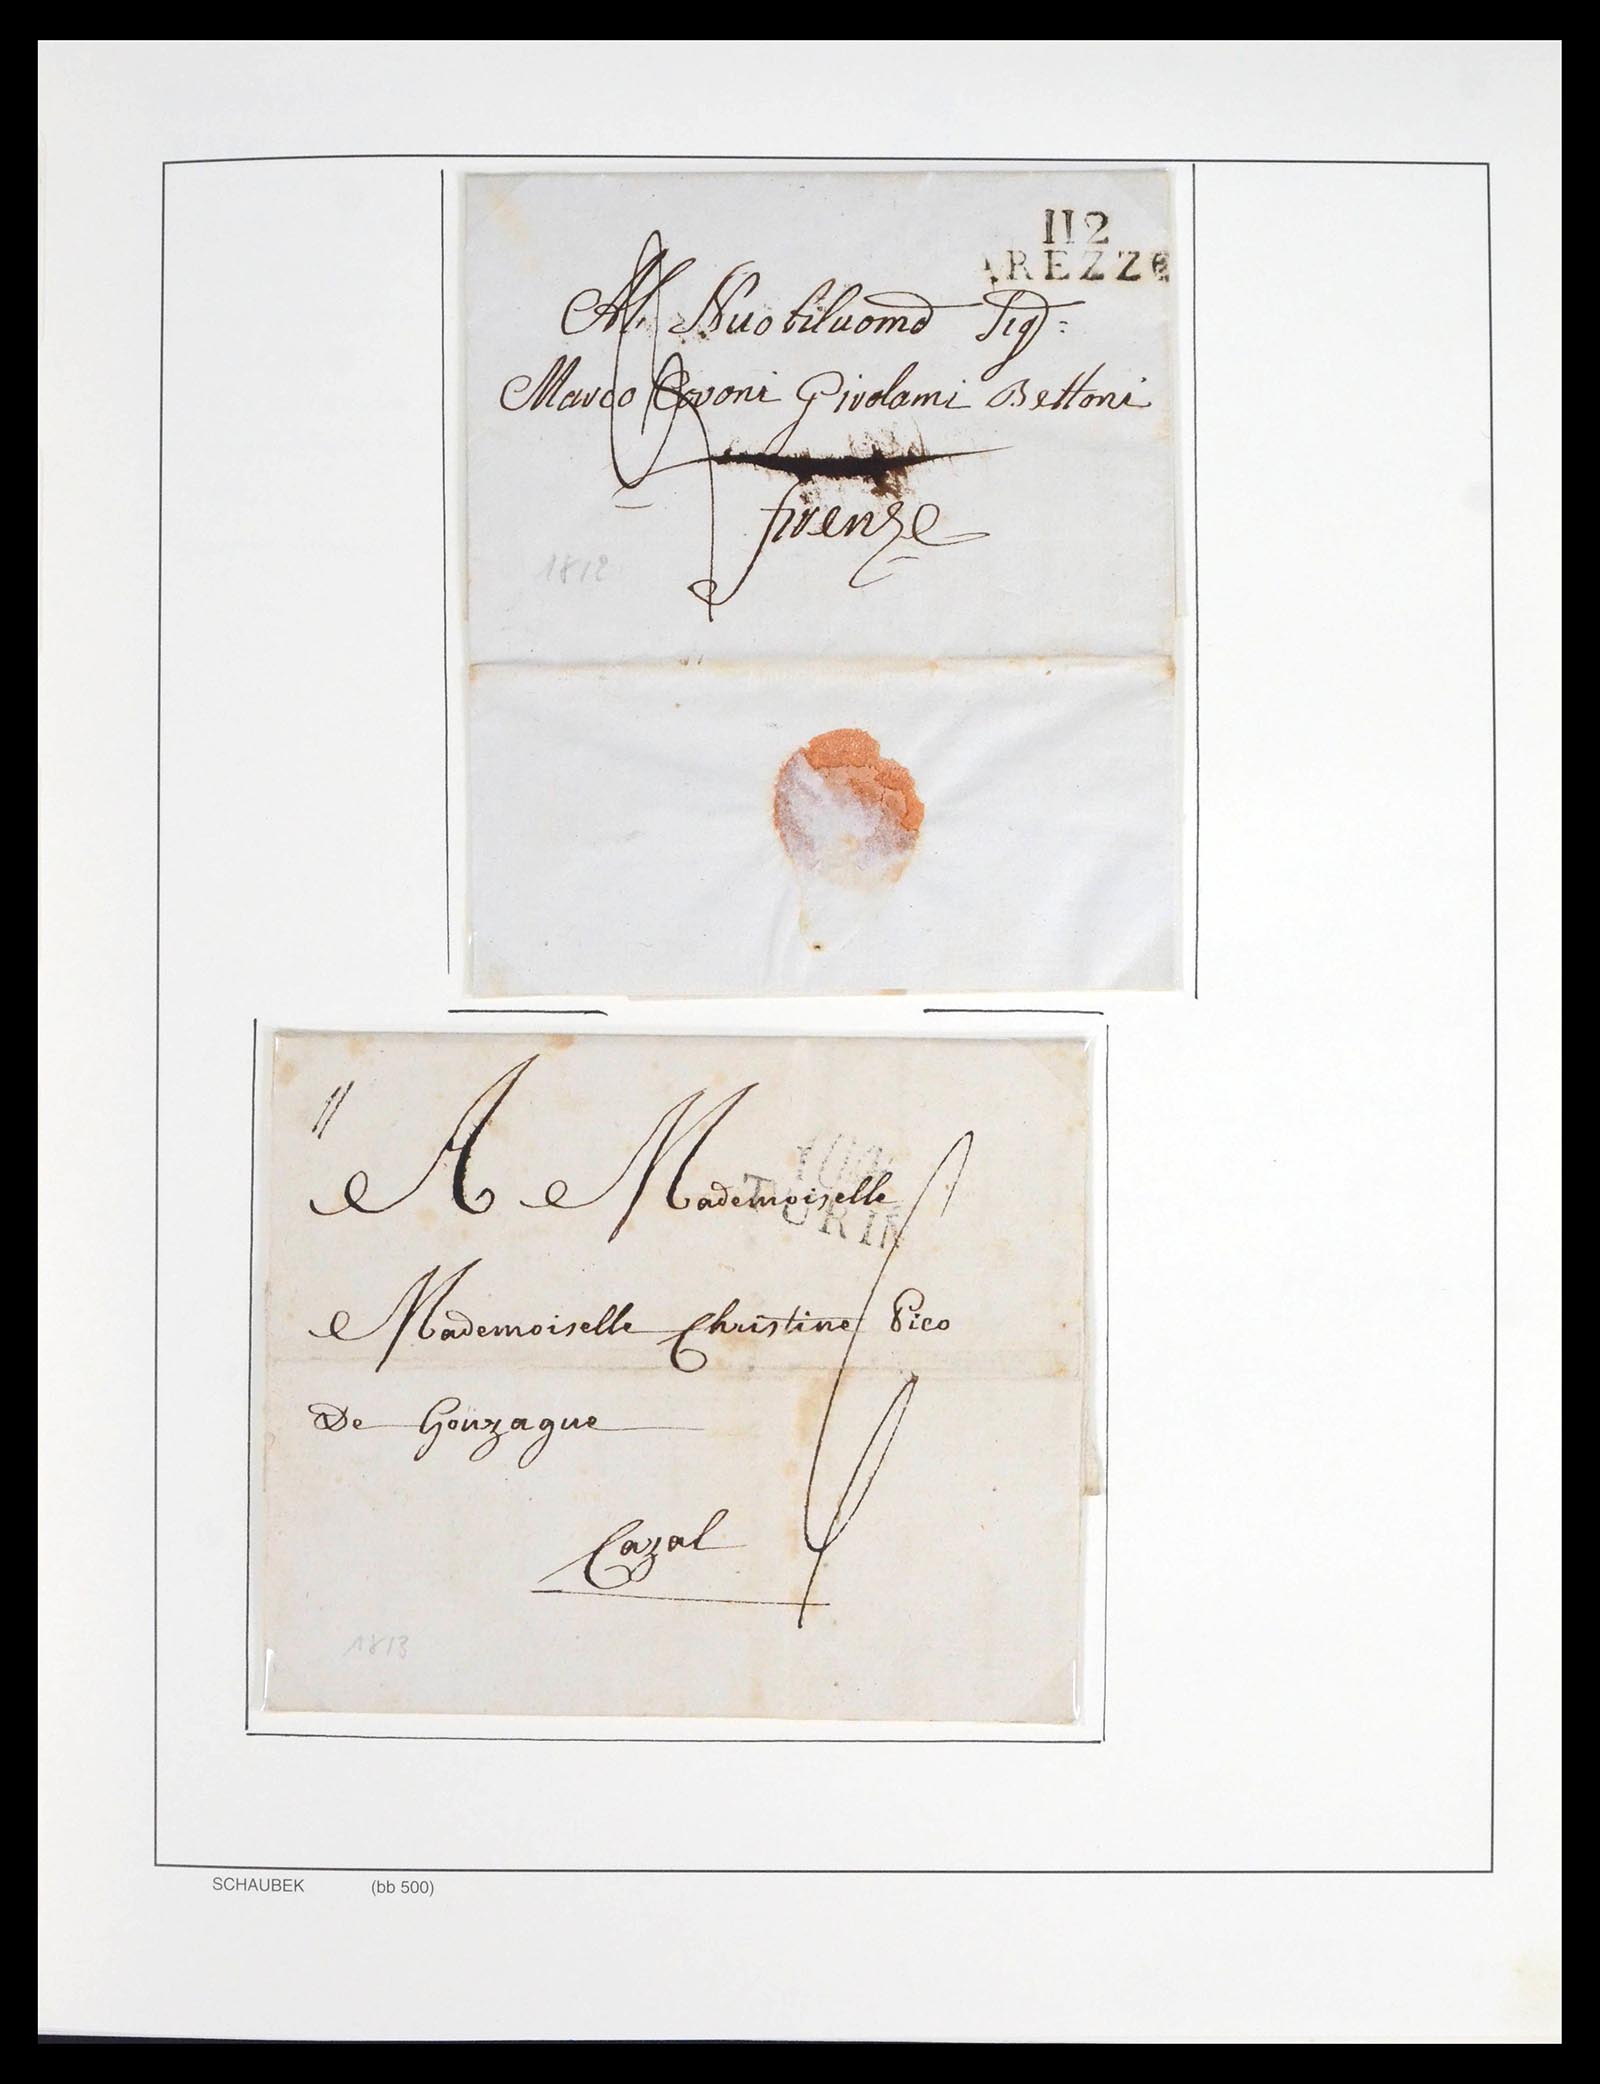 112
AREZZO
Al Nuobiluomo Sig:
Marco Covoni Girolami Bettoni
firenze
1812
104
TURIN
A Mademoiselle
Mademoiselle Christine Pico
De Gonzague
Cazal
1813
SCHAUBEK (bb 500)